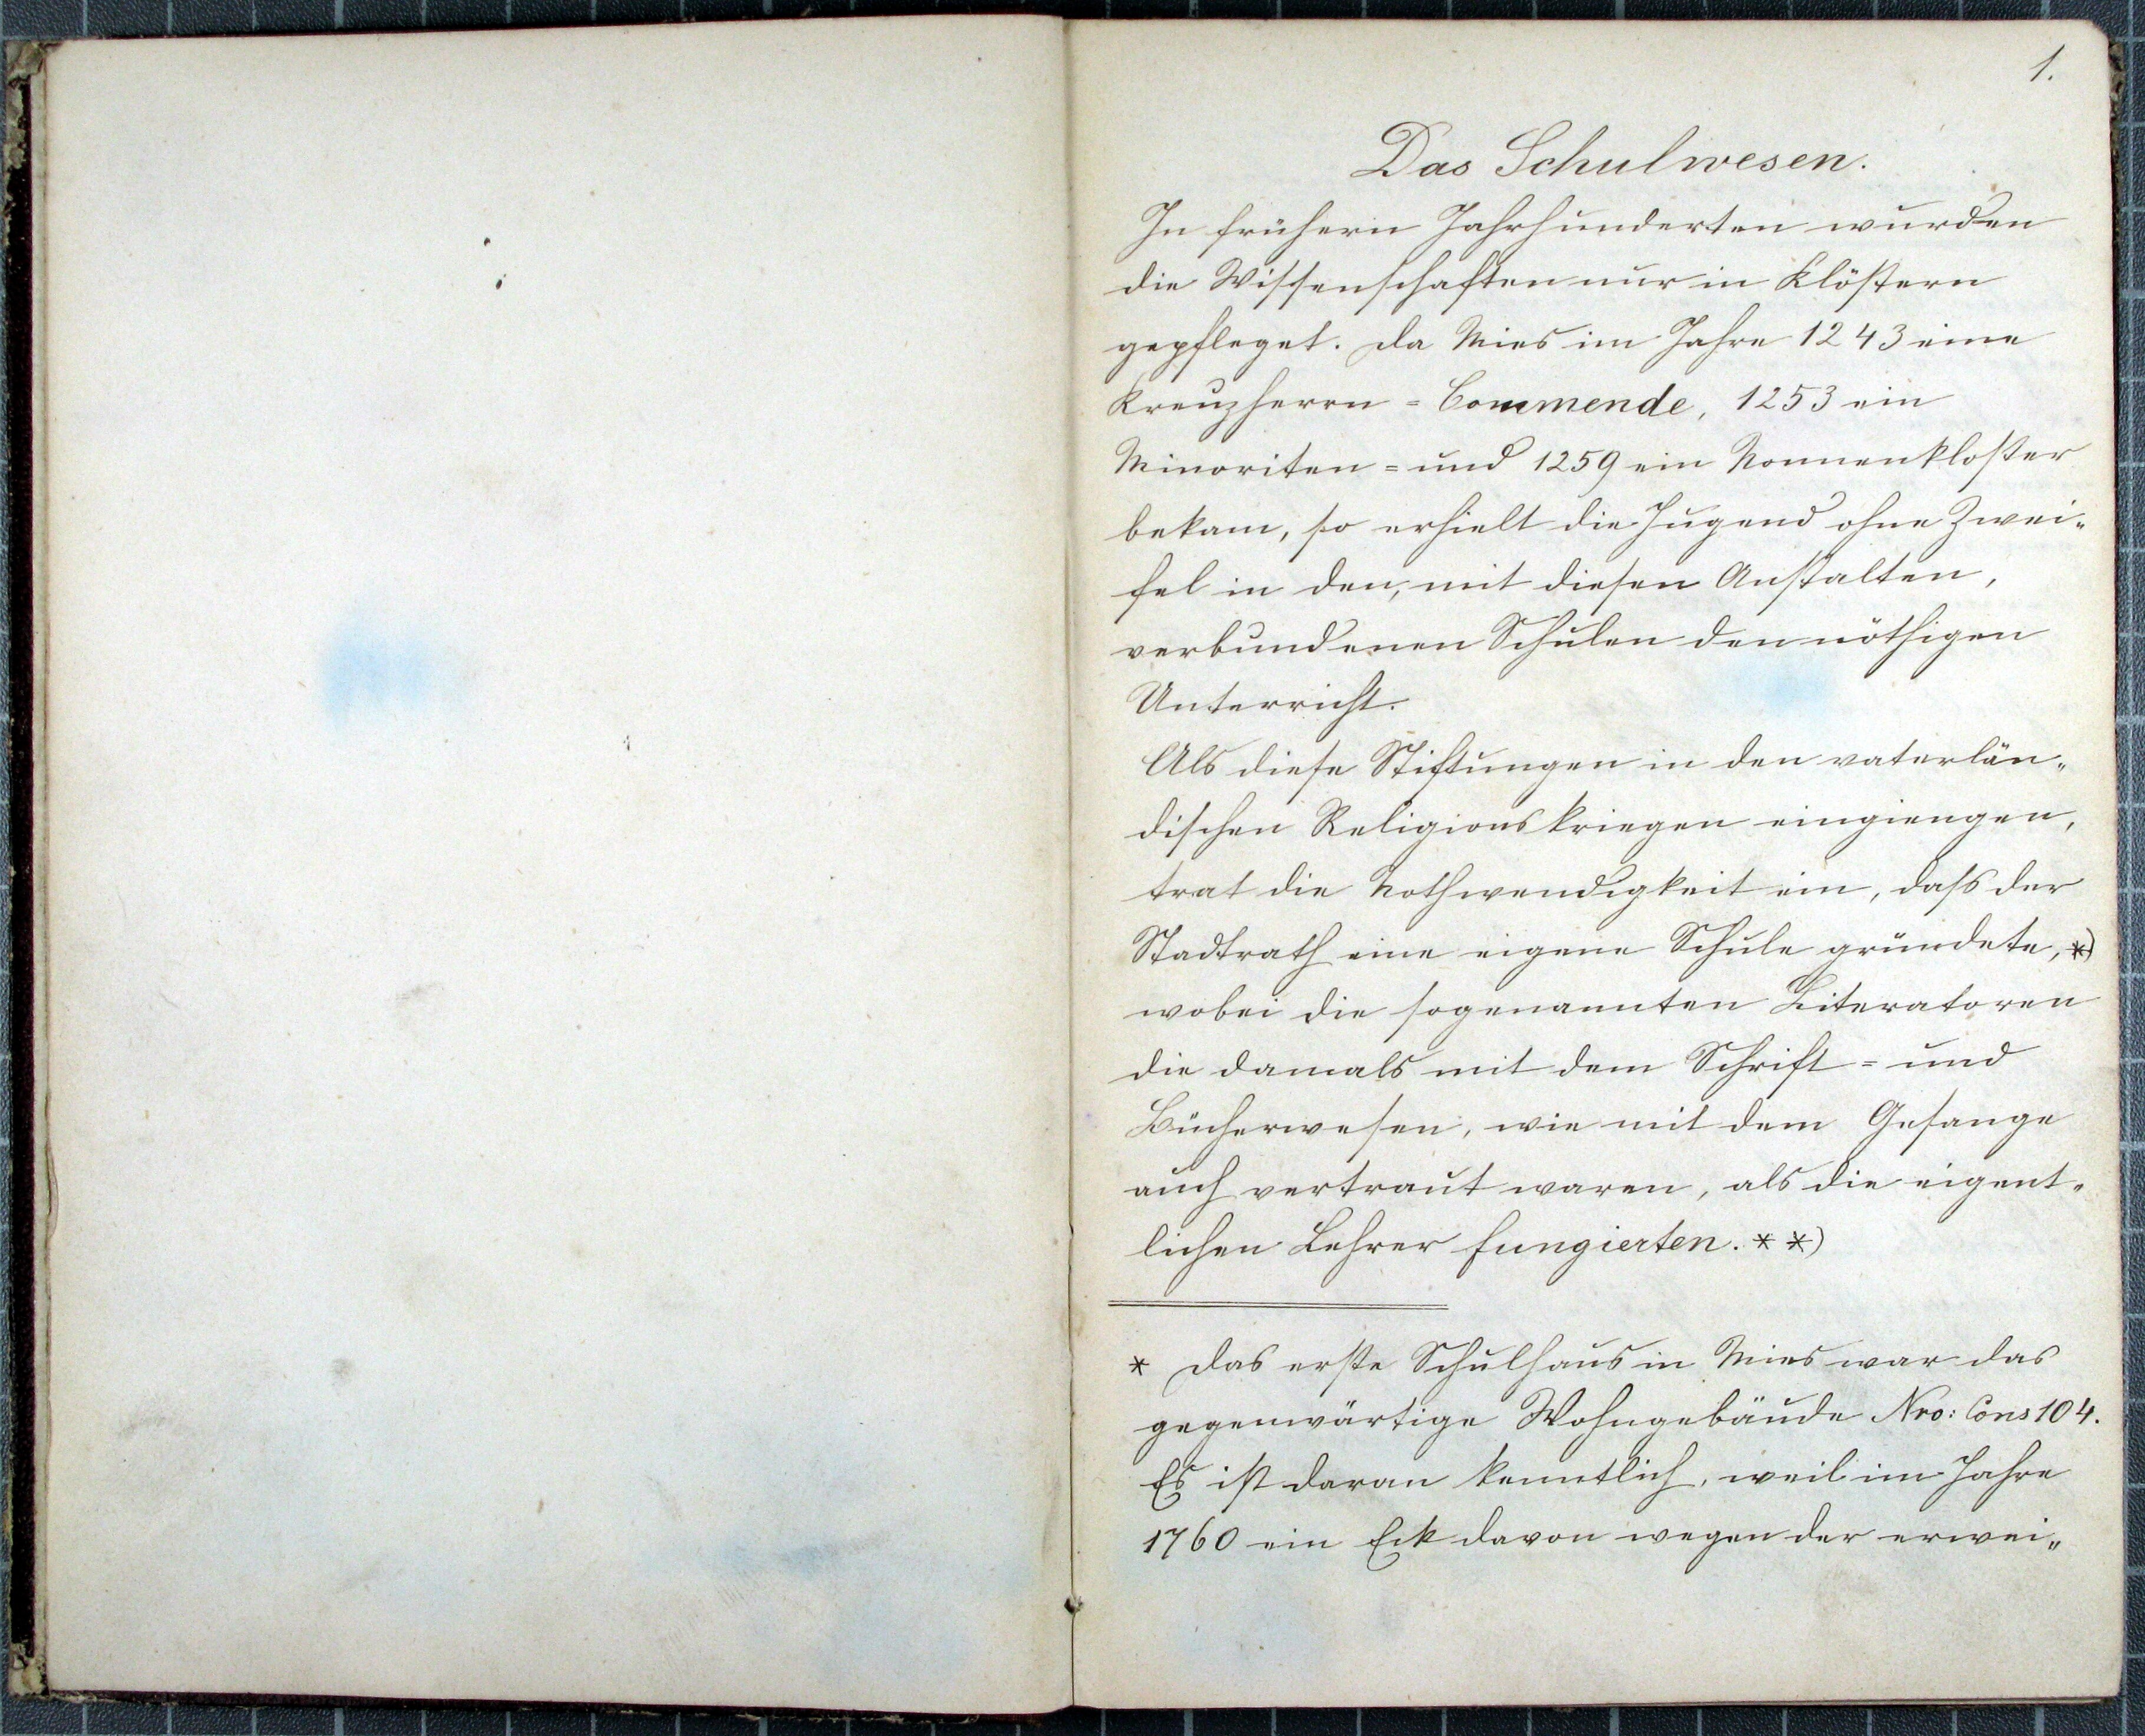 1.
Das Schulwesen.
In frühern Jahrhunderten wurden
die Wissenschaften nur in Klöstern
gepfleget. Da Mies im Jahre 1243 eine
Kreuzherrn = Commende, 1253 ein
Minoriten = und 1259 ein Nonnenkloster
bekam, so erhielt die Jugend ohne Zwei„
fel in den, mit diesen Anstalten,
verbundenen Schulen den nöthigen
Unterricht.
Als diese Stiftungen in den vaterlän„
dischen Religionskriegen eingiengen,
trat die Nothwendigkeit ein, daß der
Stadtrath eine eigene Schule gründete, *)
wobei die sogenannten Literatoren
die damals mit dem Schrift = und
Bücherwesen, wie mit dem Gesange
auch vertraut waren, als die eigent„
lichen Lehrer fungierten. * *)
* Das erste Schulhaus in Mies war das
gegenwärtige Wohngebäude Nro: Cons 104.
Es ist daran kenntlich, weil im Jahre
1760 ein Eck davon wegen der erwei„